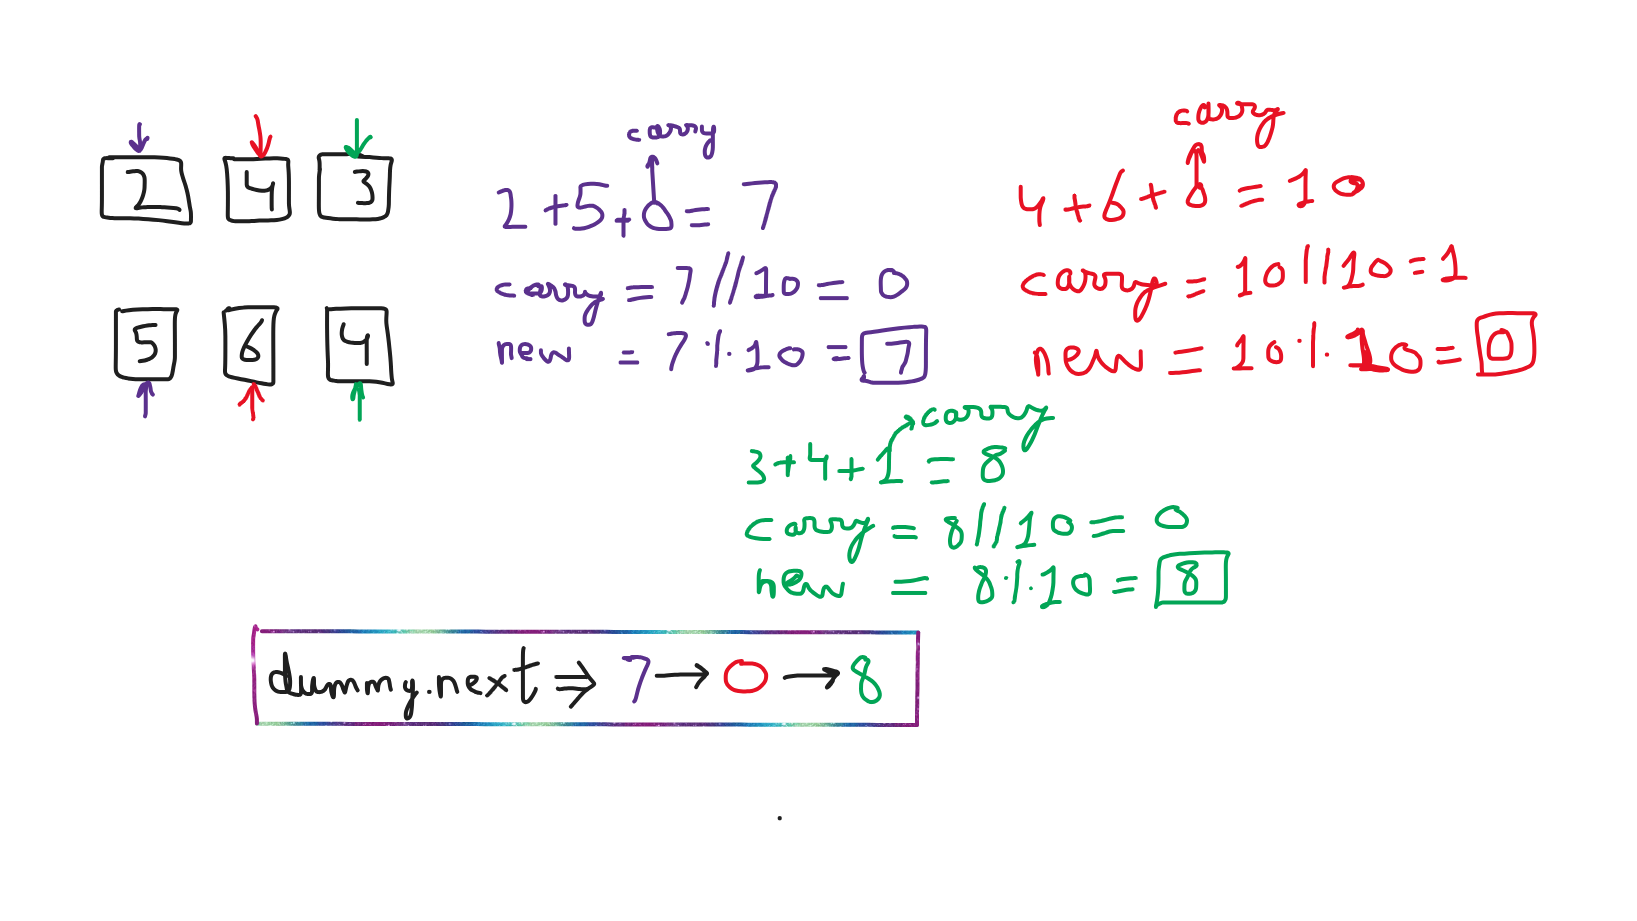 2 4 3
5 6 4
carry
2 + 5 + 0 = 7
carry = 7 // 10 = 0
new = 7 % 10 = 7
carry
4 + 6 + 0 = 10
carry = 10 // 10 = 1
new = 10 % 10 = 0
carry
3 + 4 + 1 = 8
carry = 8 // 10 = 0
new = 8 % 10 = 8
dummy.next ⇒ 7 → 0 → 8